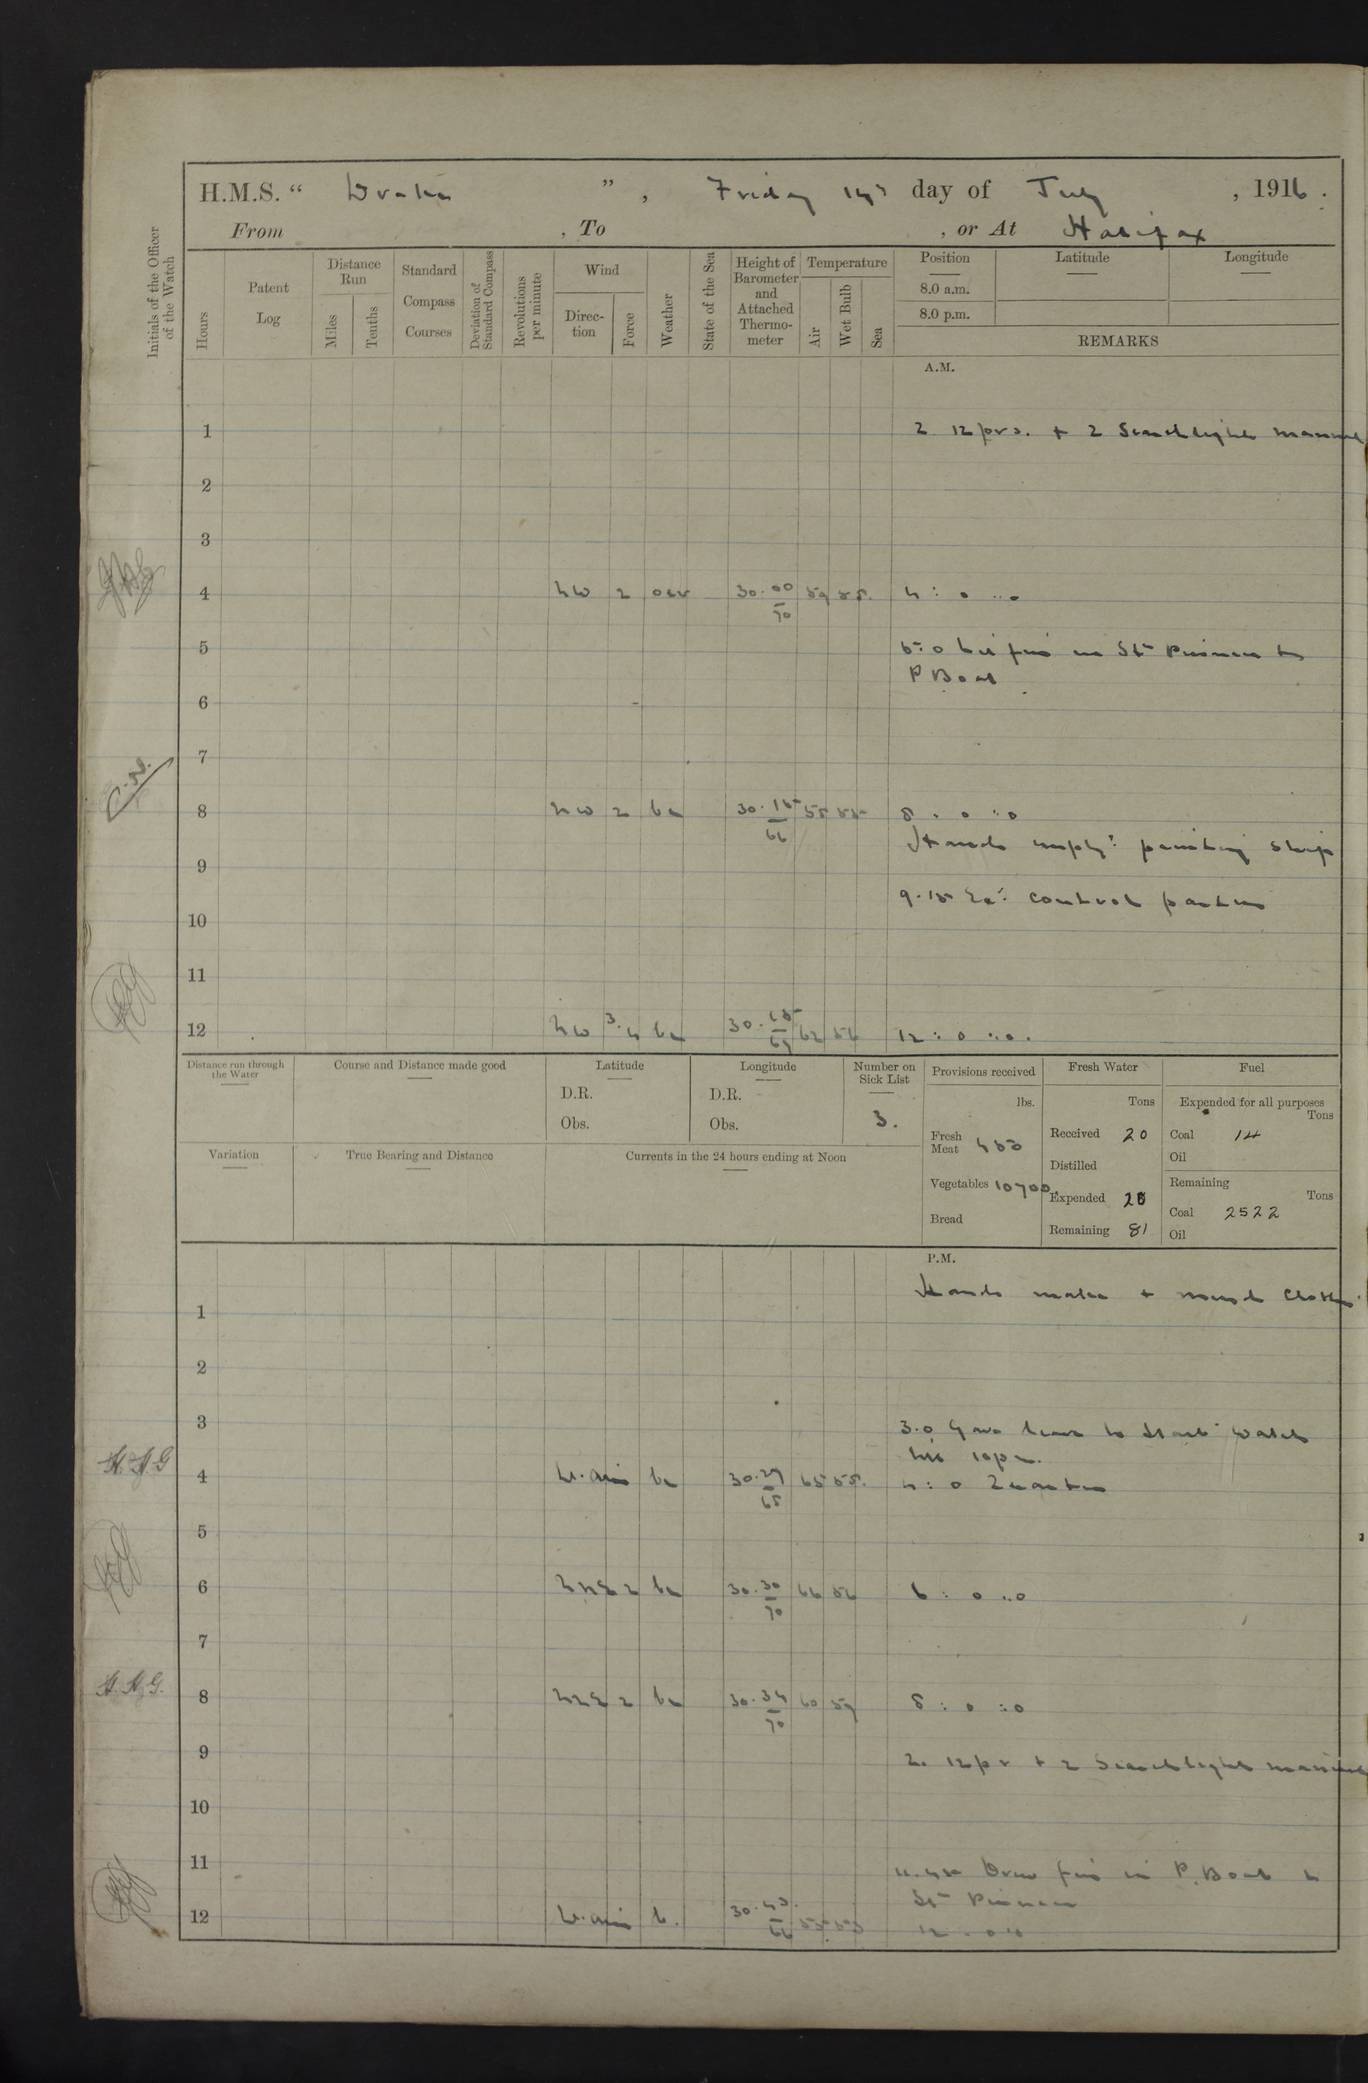 H.M.S. “ Drake ”, Friday 14th day of July, 1916.
From , To , or At Halifax
Initials of the Officer of the Watch
Hours
Patent Log
Distance Run
Miles
Tenths
Standard Compass Courses
Deviation of Standard Compass
Revolutions per minute
Wind
Direc-tion
Force
Weather
State of the Sea
Height of Barometer and Attached Thermo-meter
Temperature
Air
Wet Bulb
Sea
Position
8.0 a.m.
8.0 p.m.
Latitude
Longitude
REMARKS
A.M.
1 2 12 prs. + 2 Searchlights manned
2
3
4 NW 2 30.00/70 59 4 : 0
5 5:0 Lit fires in St Pinnace
P Boat
6
7
C.N.
8 NW 2 bc 30.15/66 55 8 . 0
Hands empld: painting ship
9
9.15 Ex: control parties
10
11
12 NW 3.4 bc 62 56 12 : 0
Distance run through the Water
Course and Distance made good
Latitude
D.R.
Obs.
Longitude
D.R.
Obs.
Number on Sick List
3.
Provisions received
lbs.
Fresh Meat 450
Vegetables 10700
Bread
Fresh Water
Tons
Received 20
Distilled
Expended 20
Remaining 81
Fuel
Expended for all purposes
Tons
Coal 14
Oil
Remaining
Tons
Coal 2522
Oil
Variation
True Bearing and Distance
Currents in the 24 hours ending at Noon
P.M.
Hands make + mend clothes
1
2
3 3.0 Gave leave to Starb watch
till 10 pm.
4 Lt. airs bc 30.29/65 65 55. 4 : 0 Quarters
5
6 NNE 2 bc 30.30/70 66 56 6 : 0
7
8 NNE 2 bc 30.34/70 60 59 8 : 0
9 2. 12 pr + 2 Searchlights manned
10
11 11.45 Drew fires in P. Boat &
St Pinnace
12 Lt. airs b. 55 53 12 . 0